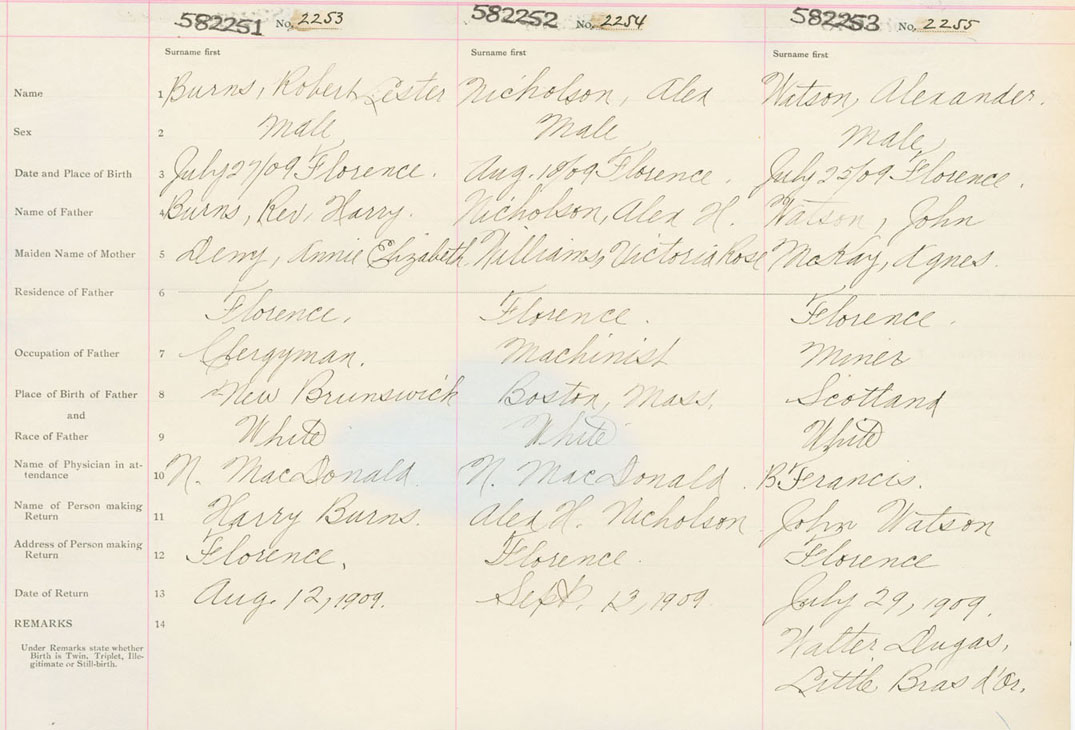 582251 No. 2253 582252 No. 2254 582253 No. 2255
Surname first Surname first Surname first
Name 1 Burns, Robert Lester Nicholson, Alex Watson, Alexander.
Sex 2 Male Male Male
Date and Place of Birth 3 July 27/09 Florence. Aug. 18/09 Florence. July 25/09 Florence.
Name of Father 4 Burns, Rev. Harry. Nicholson, Alex H. Watson, John
Maiden Name of Mother 5 Annie Elizabeth. Williams, Victoria Rose McKay, Agnes.
Residence of Father 6 Florence. Florence. Florence.
Occupation of Father 7 Clergyman. Machinist Miner
Place of Birth of Father 8 New Brunswick Boston, Mass. Scotland
and
Race of Father 9 White White White
Name of Physician in at-
tendance 10 N. MacDonald. N. MacDonald. B. Francis.
Name of Person making
Return 11 Harry Burns. Alex H. Nicholson John Watson
Address of Person making
Return 12 Florence. Florence. Florence
Date of Return 13 Aug. 12, 1909. Sept. 13, 1909 July 29, 1909.
REMARKS 14 Walter Dugas,
Under Remarks state whether
Birth is Twin, Triplet, Ille-
gitimate or Still-birth.
Little Bras d'Or.